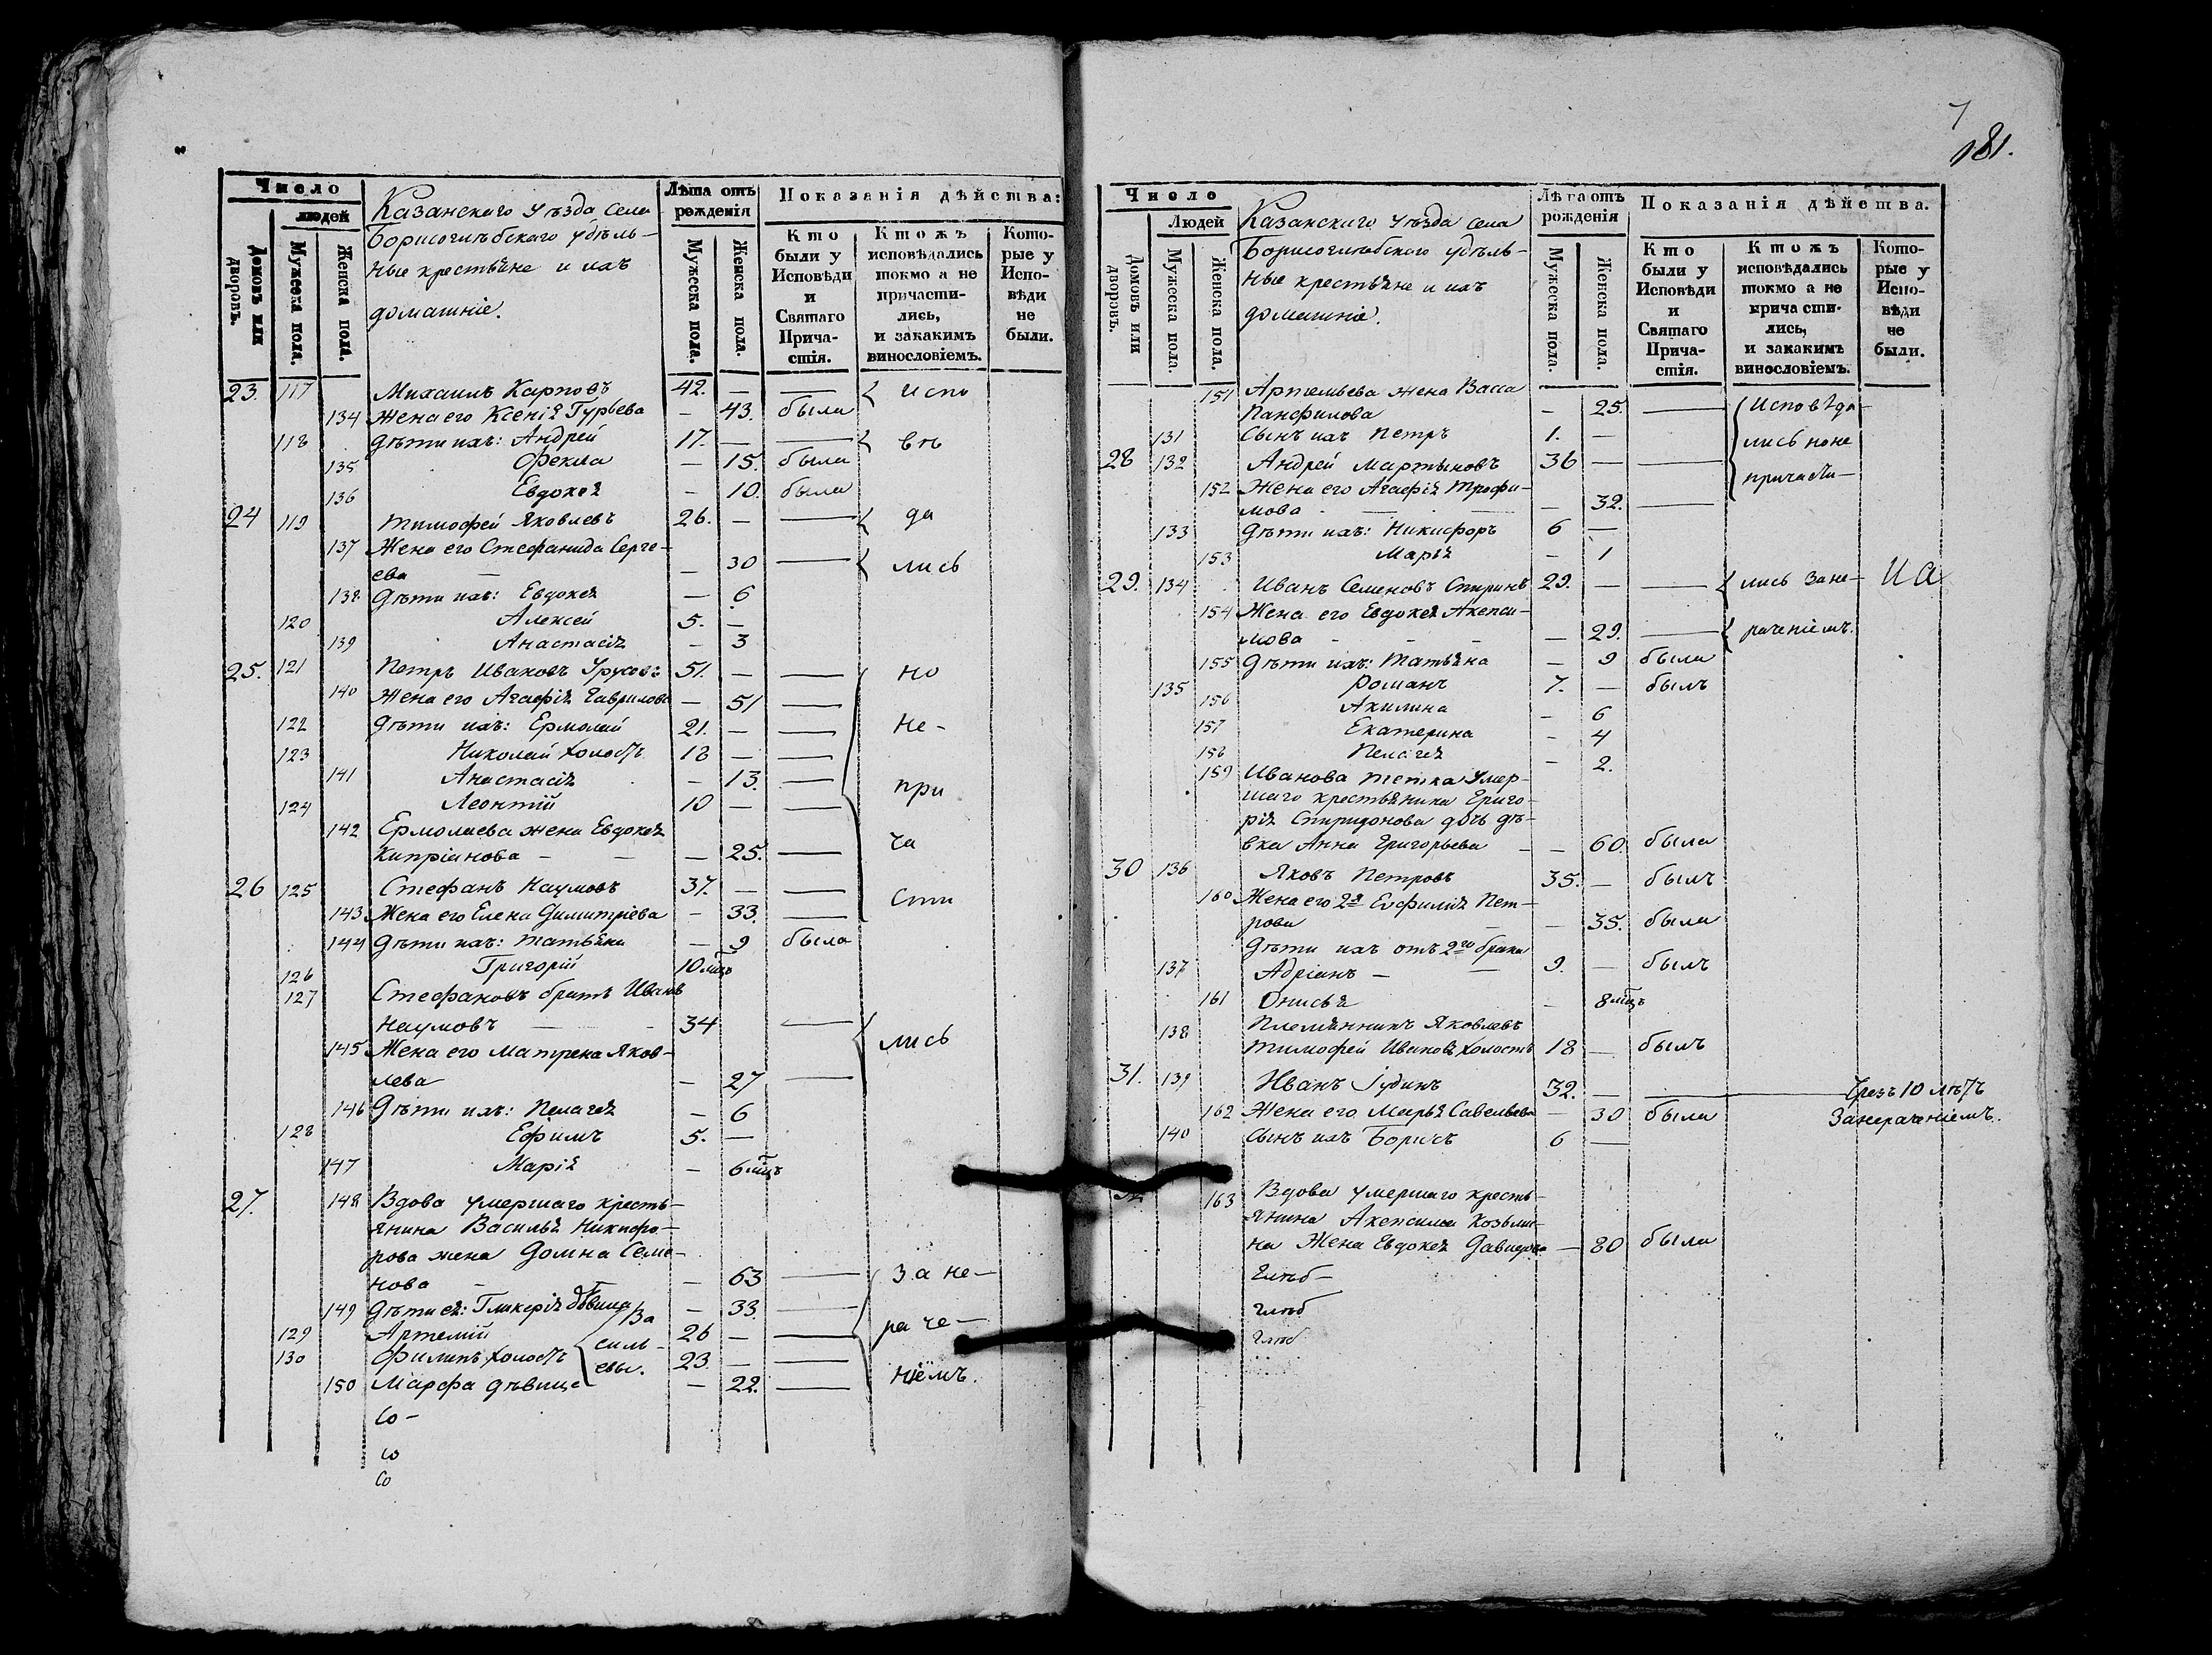 Число
людей
Домовъ или дворовъ.
Мужеска пола.
Женска пола.
Казанскаго уѣзда села
Борисоглѣбскаго удѣль-
ные крестьяне и ихъ
домашніе.
Лѣта отъ рожденія
Мужеска пола.
Женска пола.
Показанія дѣйства:
Кто были у Исповѣди и Святаго Прича-стія.
Ктожъ исповѣдались токмо а не причасти-лись, и закакимъ винословіемъ.
Кото-рые у Испо-вѣди не были.
23. 117 Михаилъ Карповъ 42. — — { Испо
134 Жена его Ксенія Гурьева — 43. была
118 Дѣти ихъ: Андрей 17. — — { вѣ
135 Фекла — 15. была
136 Евдокея — 10. была
24 119 Тимофей Яковлевъ 26. — — { да
137 Жена его Стефанида Серге-
ева — — 30 — { лись
138 Дѣти ихъ: Евдокея — 6
120 Алексей 5. —
139 Анастасія — 3
25. 121 Петръ Ивановъ Урусовъ 51. — — но
140 Жена его Агафія Гаврилова — 51 —
122 Дѣти ихъ: Ермолай 21. — — не-
123 Николай холостъ 18 — —
141 Анастасія — 13. —
124 Леонтій 10 — — при
142 Ермолаева жена Евдокея
Кипріанова — — — 25. — ча
26 125 Стефанъ Наумовъ 37. — —
143 Жена его Елена Димитріева — 33. — сти
144 Дѣти ихъ: Татьяна — 9 была
126 Григорій 10 мцъ
127 Стефановъ братъ Иванъ
Наумовъ — 34 —
145 Жена его Матрена Яков- лись
лева — 27 —
146 Дѣти ихъ: Пелагея — 6
128 Ефимъ 5. —
147 Марія — 6 мцъ
27. 148 Вдова умершаго кресть-
янина Василья Никифо-
рова жена Домна Семе-
нова — — 63 — за не-
149 Дѣти ея: Гликерія дѣвица — 33. —
129 Артемій 26 — — раче-
130 Филипъ холостъ 23 — —
150 Марфа дѣвица — 22. — ніемъ.
Ва
силь-
евы.
Со-
со
Со
7
181.
Число
Людей
Домовъ или дворовъ.
Мужеска пола.
Женска пола.
Казанскаго уѣзда села
Борисоглѣбскаго удѣль-
ные крестьяне и ихъ
домашніе.
Лѣта отъ рожденія
Мужеска пола.
Женска пола.
Показанія дѣйства.
Кто были у Исповѣди и Святаго Прича-стія.
Ктожъ исповѣдались токмо а не прича сти-лись, и закакимъ винословіемъ.
Кото-рые у Испо-вѣди не были.
151 Артемьева жена Васса
Панфилова — 25. — Исповѣда-
131 Сынъ ихъ Петръ 1. — лись но не
28 132 Андрей Мартыновъ 36 — — причасти-
152 Жена его Агафія Трофи-
мова — — 32. —
133 Дѣти ихъ: Никифоръ 6 —
153 Марія — 1
29. 134 Иванъ Семеновъ Спиринъ 29. — — { лись зане-
154 Жена его Евдокея Акепси-
мова — — 29. — { раченіемъ.
155 Дѣти ихъ: Татьяна — 9 была
135 Романъ 7. — былъ
156 Акилина — 6
157 Екатерина — 4
158 Пелагея — 2.
159 Иванова тетка умер-
шаго крестьянина Григо-
рія Спиридонова дочь дѣ-
вка Анна Григорьева — — 60. была
30 136 Яковъ Петровъ 35. — былъ
160 Жена его 2я Евфимія Пет-
рова — — 35. была
Дѣти ихъ отъ 2го брака
137 Адріанъ — — 9. — былъ
161 Онисья — 8 мцъ
138 Племянникъ Яковлевъ
Тимофей Ивановъ холостъ 18 — былъ
31. 139 Иванъ Іудинъ 32. — — Чрезъ 10 лѣтъ
162 Жена его Марья Савельева — 30 была Занераченіемъ.
140 Сынъ ихъ Борисъ 6 —
163 Вдова умершаго кресть-
янина Акепсима Козьми-
на Жена Евдокея Давидова — 80 была
Глѣб-
глѣб
глѣб